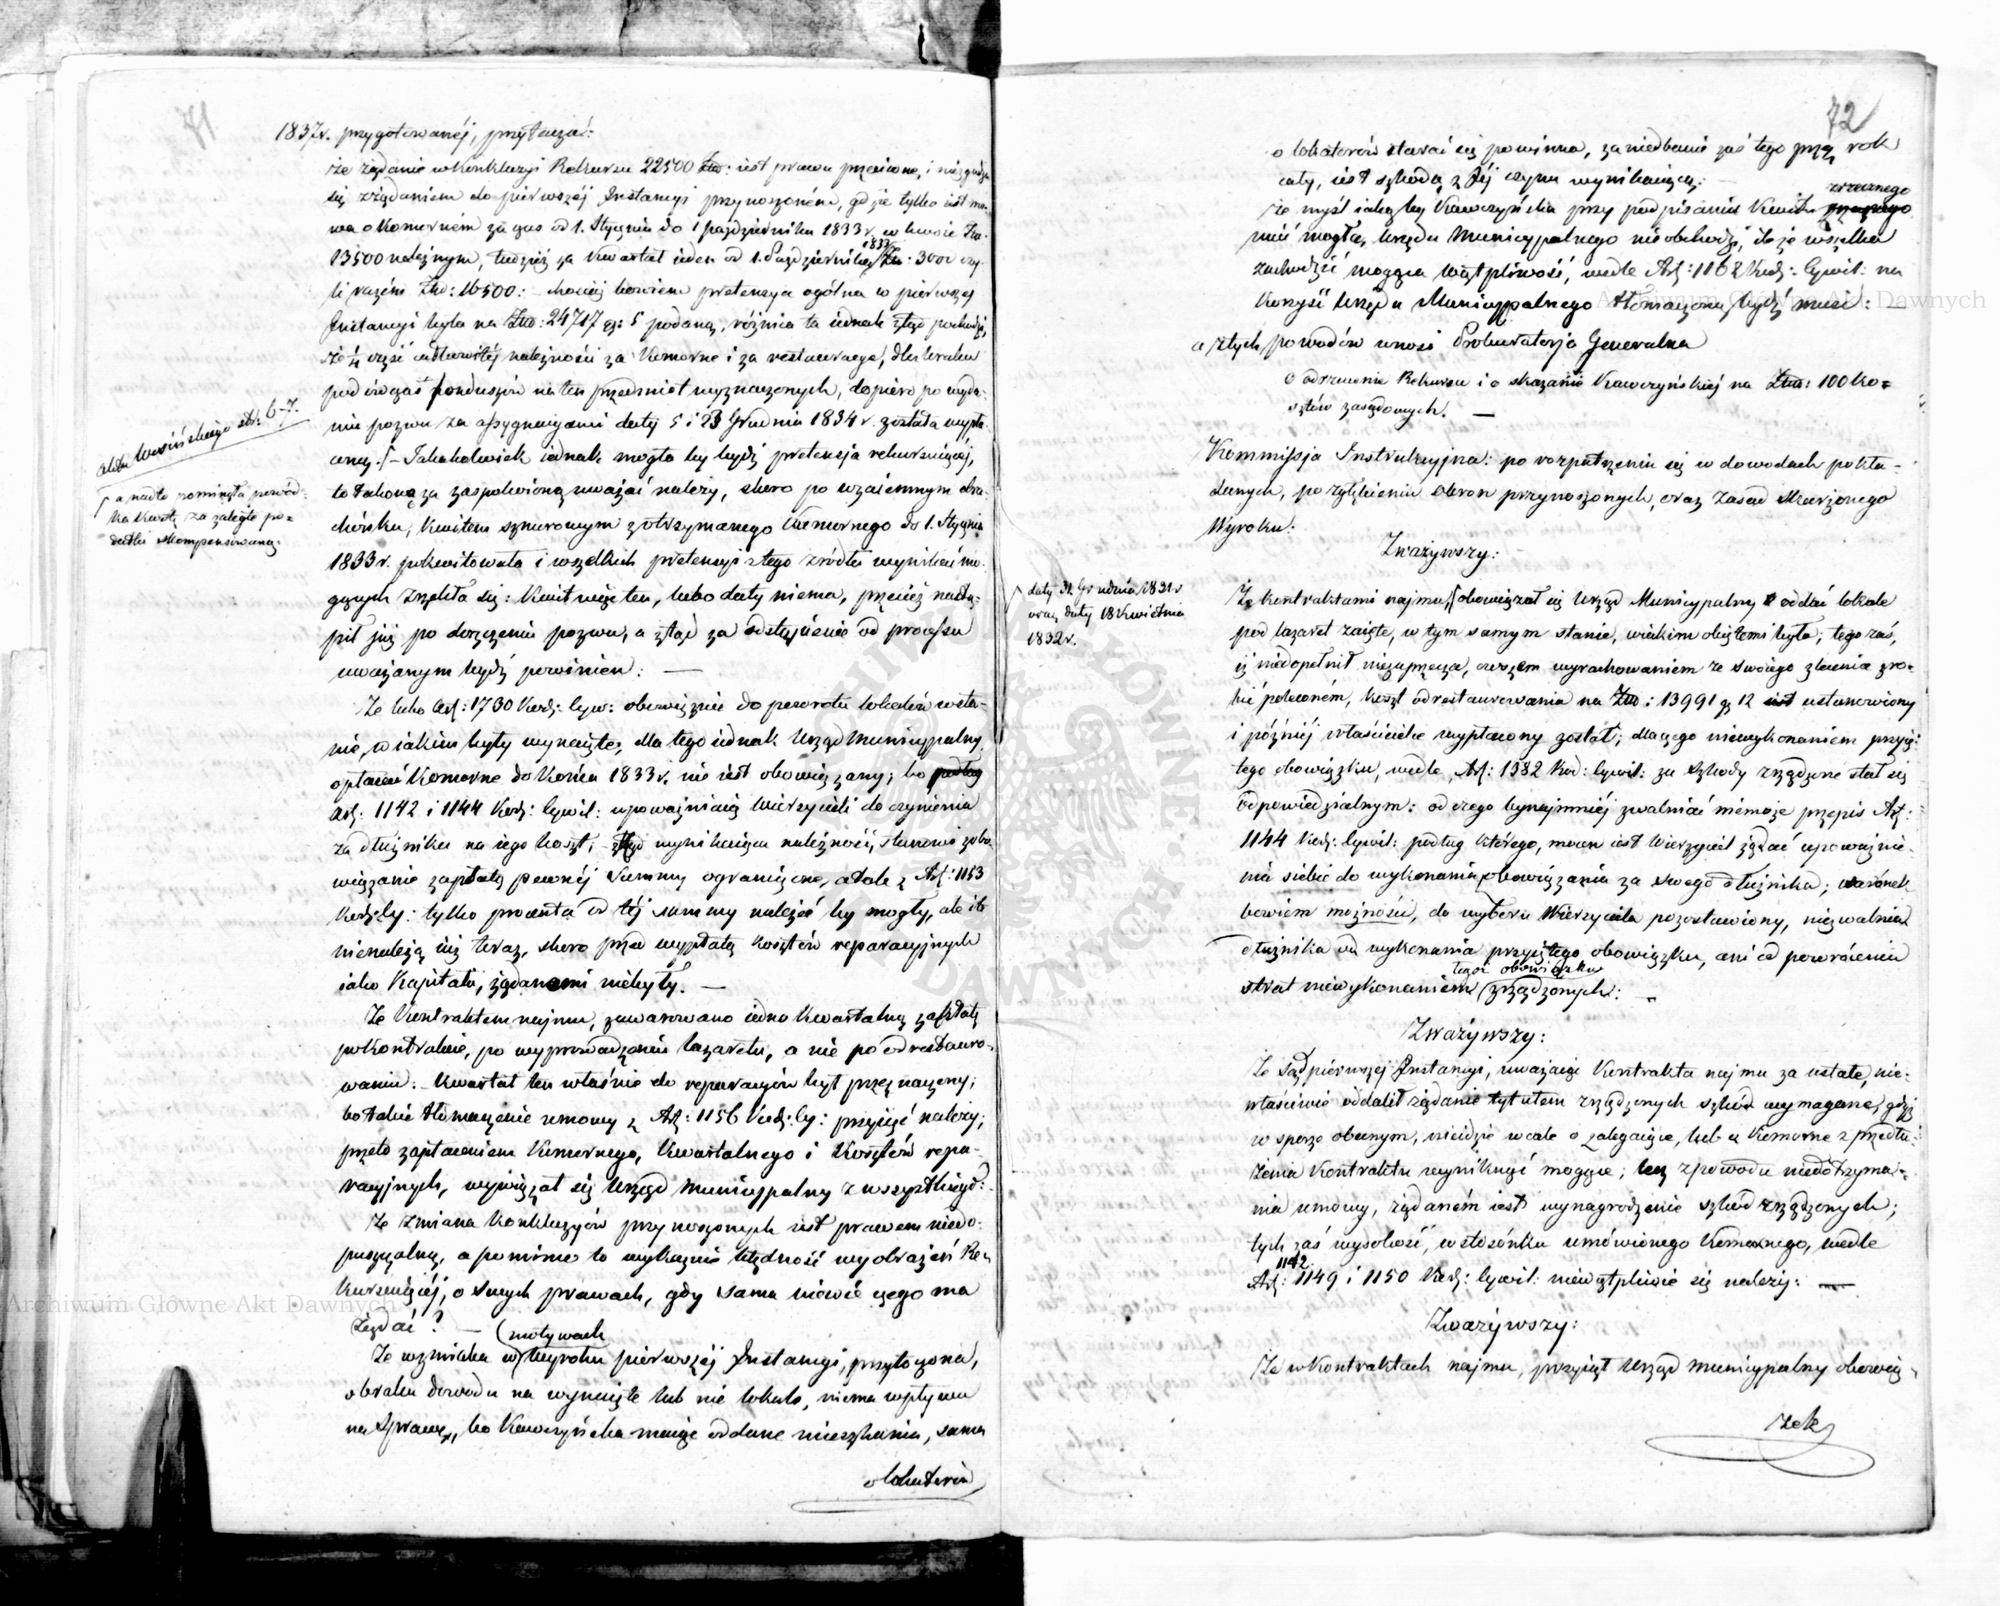 71
1837 r. przygotowanéj, przytacza:
że żądanie w konkluzyi Rekursu 22500 Złł: iest prawu przeciwne, i niezgadza
się z żądaniem do pierwszéj Instancyi przynoszoném, gdzie tylko iest mo-
wa o Komorném za czas od 1. Stycznia do 1 października 1833 r. w kwocie Zło.
13500 należnym, tudzież za kwartał ieden od 1. Października 1833 Złł: 3000 czy-
li razém Złł: 16500: – chociaż bowiem pretensya ogólna w pierwszéj
Instancyi była na Złł: 24717 gr: 5 podaną, różnica ta iednak ztąd pochodzi,
że ¼ część całkowitéj należności za Komorne i za restauracye, dla braku
podówczas funduszów na ten przedmiot wyznaczonych, dopiero po wyda-
niu pozwu za assygnacyami daty 5 i 23 Grudnia 1834 r. została wypła-
coną. – Jakakolwiek iednak mogła by bydź pretensja rekursuiącéj,
to takową za zaspokoioną uważać należy, skoro po wzaiemnym obra-
chónku, kwitem sznurowym z otrzymanego Komornego do 1. Stycznia
1833 r. pokwitowała i wszelkich pretensyi z tego źródła wyniknąć mo-
gących zrzekła się: Kwit więc ten, lubo daty niema, przecież nastą-
pił już po doręczeniu pozwu, a ztąd za odstąpienie od processu
uważanym bydź powinien: –
aktu Wosińskiego str. 6-7.
a nadto pominęła powód-
ka kwotę za zaległe po-
datki skompensowaną.
Że lubo Art: 1730 Kod: Cyw: obowiązuie do powrotu lokalów w sta-
nie, w iakim były wynaięte, dla tego iednak Urząd Municypalny
opłacać Komorne do końca 1833 r. nie iest obowiązany; bo podług
Art: 1142 i 1144 Kod: Cywil: upoważniaią Wierzycieli do czynienia
za dłużnika na iego koszt, ztąd wynikaiąca należność, stanowi zobo-
wiązanie zapłaty pewnéj Summy ograniczone, a tak z Art: 1153
Kod: Cy: tylko procenta od téj summy należeć by mogły, ale i te
nienależą się teraz, skoro przed wypłatą kosztów reparacyjnych
iako Kapitału, żądanemi niebyły. –
Że Kontraktem najmu, zawarowano iedno kwartalną zapłatę
po kontrakcie, po wyprowadzeniu lazaretu, a nie po odrestauro-
waniu. Kwartał ten właśnie do reparacyów był przeznaczony;
bo takie tłómaczenie umowy z Art: 1156 Kod: Cy: przyiąć należy;
przeto zapłaceniem Komornego, kwartalnego i kosztów repa-
racyjnych, wywiązał się Urząd Municypalny z wszystkiego:
Że zmiana konkluzyów przynoszonych iest prawem niedo-
puszczalną, a pomimo to wykazuie błędność wyobrażeń Re-
kursuiącéj, o swych prawach, gdy sama niewie czego ma
żądać? –
Że wzmianka w (motywach Wyroku pierwszéj Instancyi, przytoczona,
o braku dowodu na wynaięte lub nie lokale, niema wpływu
na Sprawę, bo Kawczyńska maiąc oddane mieszkania, sama
o lokatoria
72
o lokatorów starać się powinna, zaniedbanie zaś tego przez rok
cały, iest szkodą z Jéj czynu wynikaiącą: –
że myśl iaką by Kawczyńska przy podpisaniu Kwitu zrzecznego
mieć mogła, Urzędu Municypalnego nieobchodzi, ileże wszelka
zachodzić mogąca wątpliwość, wedle Art: 1162 Kod: Cywil: na
korzyść Urzędu Municypalnego tłómaczoną bydź musi: –
a z tych powodów wnosi Prokuratorja Generalna
o odrzucenie Rekursu i o skazanie Kawczyńskiéj na Złł: 100 ko-
sztów zasądowych. –
Kommissja Instrukcyjna: po rozpatrzeniu się w dowodach pokła-
danych, po zgłębieniu obron przynoszonych, oraz zasad skarżonego
Wyroku:
Zważywszy:
daty 31 Grudnia 1831 r
oraz daty 18 Kwietnia
1832 r.
Że kontraktami najmu, obowiązał się Urząd Municypalny oddać lokale
pod lazaret zaięte, w tym samym stanie, w iakim obiętemi były; tego zaś,
iż niedopełnił niezaprzecza, owszem wyrachowaniem ze swoiego zlecenia zro-
bić poleconém, koszt odrestaurowania na Złł: 13991 gr 12 ustanowiony
i późniéj właścicielce wypłacony został; dla czego niewykonaniem przyię-
tego obowiązku, wedle Art: 1382 Kod: Cywil: za szkody zrządzone stał się
odpowiedzialnym: od czego bynajmniéj zwalniać niemoże przepis Art:
1144 Kod: Cywil: podług którego, mocen iest Wierzyciel żądać upoważnie-
nia siebie do wykonania obowiązania za swego dłużnika; warónek
bowiem możności, do wyboru Wierzyciela pozostawiony, niezwalnia
dłużnika od wykonania przyiętego obowiązku, ani od powrócenia
strat niewykonaniem tegoż obowiązku zrządzonych: –
Zważywszy:
Że Sąd pierwszéj Instancyi, uważaiąc Kontrakta najmu za ustałe, nie-
właściwie oddalił żądanie tytułem zrządzonych szkód wymagane, gdyż
w sporze obecnym, nieidzie wcale o zalegaiące, lub o Komorne z przedłu-
żenia Kontraktu wyniknąć mogące; lecz z powodu niedotrzyma-
nia umowy, żądaném iest wynagrodzenie szkód zrządzonych;
tych zaś wysokość, w stosónku umówionego Komornego, wedle
Art: 1142. 1149 i 1150 Kod: Cywil: niewątpliwie się należy: –
Zważywszy:
Że w Kontraktach najmu, przyiął Urząd Municypalny obowią-
zek
Archiwum Główne Akt Dawnych
Archiwum Główne Akt Dawnych